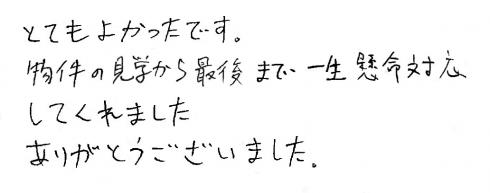 とてもよかったです。
物件の見学から最後まで一生懸命対応
してくれました
ありがとうございました。